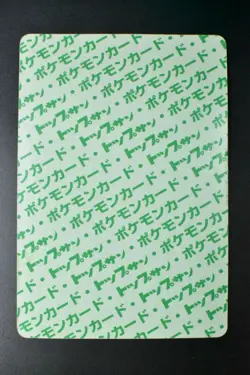 ポケモンカード・
ポケモンカード・トップサン
トップサン・ポケモンカード・
ポケモンカード・トップサン
トップサン・ポケモンカード・
ポケモンカード・トップサン
トップサン・ポケモンカード・
ポケモンカード・トップサン
トップサン・ポケモンカード・
ポケモンカード・トップサン
トップサン・ポケモンカード・
ポケモンカード・トップサン
トップサン・ポケモンカード